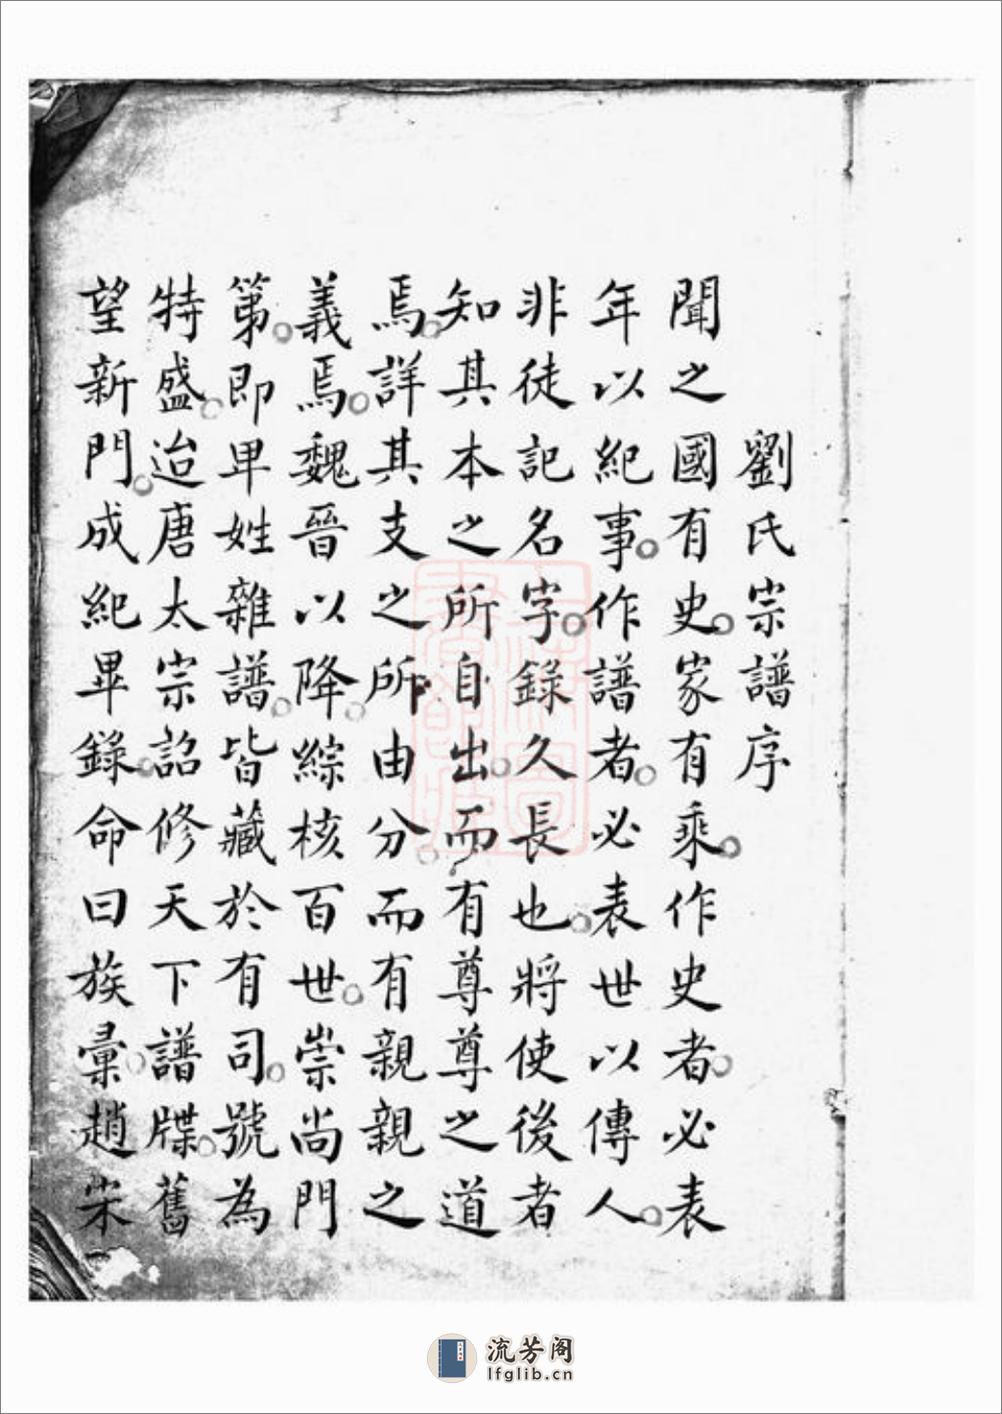 劉氏宗譜序
聞之國有史家有乘作史者必表
年以紀事作譜者必表世以傳人
非徒記名字錄久長也將使後者
知其本之所自出而有尊尊之道
焉詳其支之所由分而有親親之
義焉魏晉以降綜核百世崇尚門
第即甲姓雜譜皆藏於有司號為
特盛迨唐太宗詔修天下譜牒舊
望新門成紀畢錄命曰族彙趙宋
流芳阁
lfglib.cn